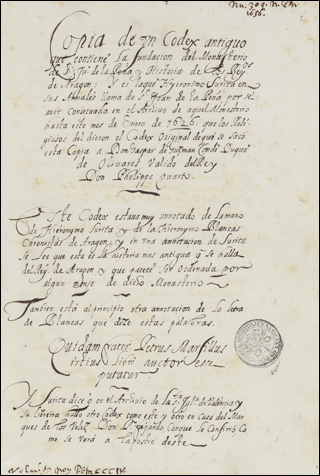 Copia de un Codex antiguo
que contiene la fundacion del Monasterio
de S. Jua. de la Peña y Historia de los Rey.
de Aragon; y es la que Hyeronimo Surita en
sus Annales llama de S. Juan de la Peña por se-
uir conseruada en el Archiuo de aquel Monasterio
hasta este mes de Enero de 1626. que los Reli-
giosos del dieron el Codex Original de que se sacó
esta Copia a Don Gaspar de Guzman Conde Duque
de Oliuares Valido del Rey
Don Phelippe Quarto.
Este Codex estaua muy annotado de la mano
de Hieronymo Surita y de la Hieronymo Blancas
Coronistas de Aragon; y en una annotacion de Surita
se lee que esta es la historia mas antigua q se halla
del Rey. de Aragon y que parece ser ordenada por
algun monje de dicho Monasterio.
Tambien está al principio otra annotacion de la letra
de Blancas que dize estas palabras.
Quidam frater Petrus Marfilius
istius libri auctor esse
putatur
Surita dice q en el Archiuo de la S. Igl. de Valencia y
su libreria hallo otro Codex como este y otro en casa del Mar
ques de los Velez D. P. Fajardo Con que se Confirio Co
mo se verá a la postre deste